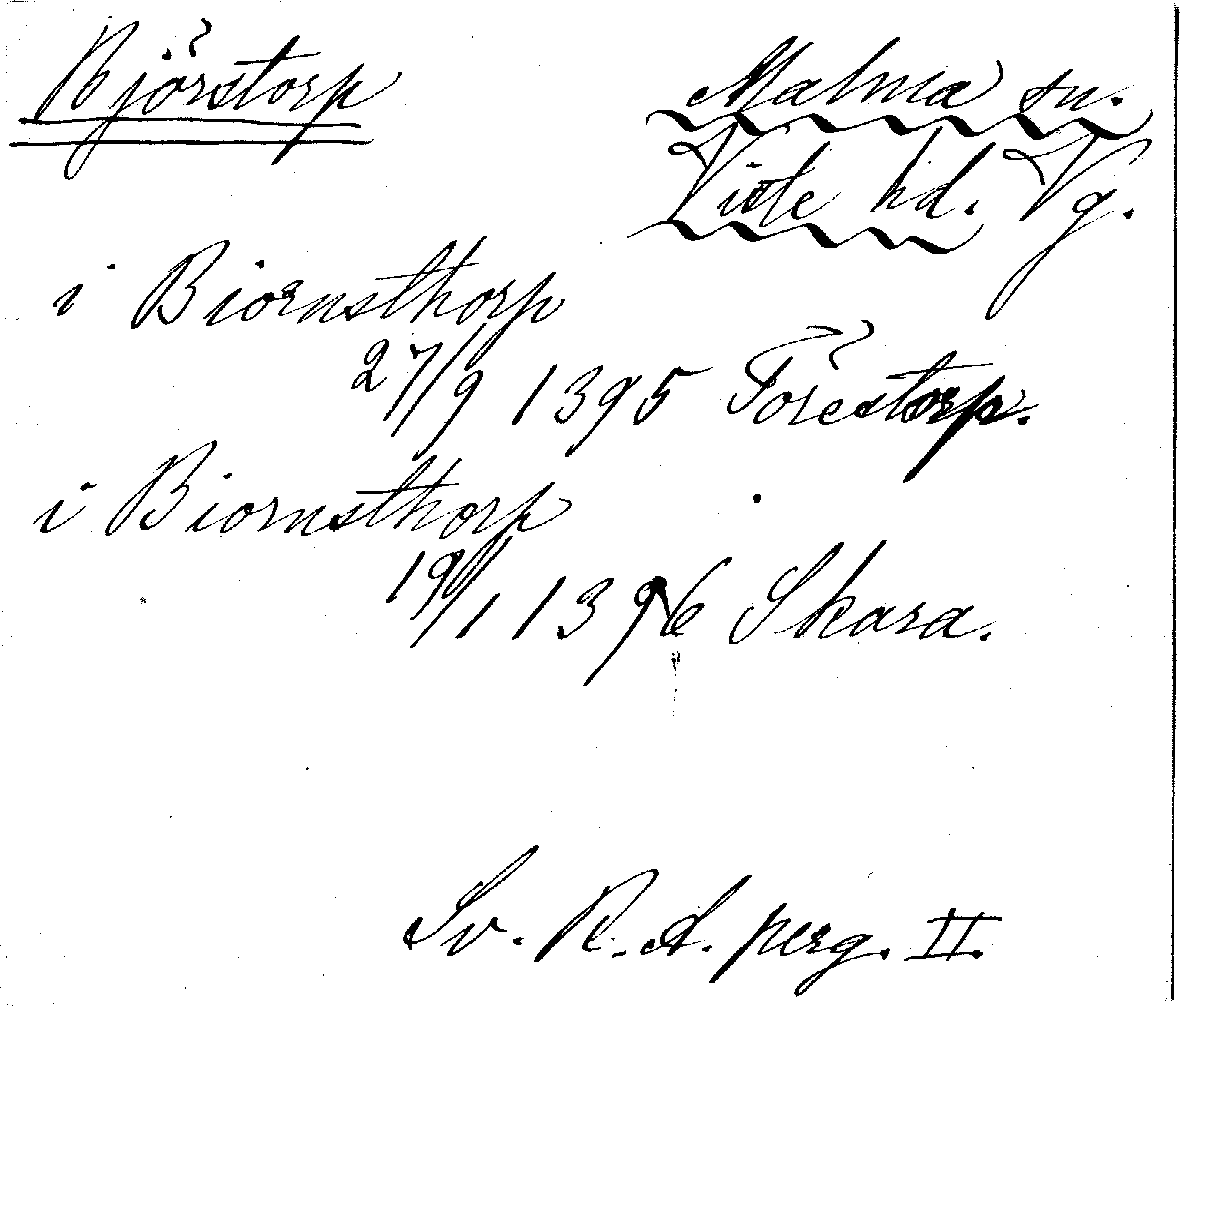 Björstorp
Malma sn.
Viste hd. Vg.
i Biornsthorp
27/9 1395 Förestorp.
i Biornsthorp
19/1 1396 Skara.
Sv. R. A. perg. II.